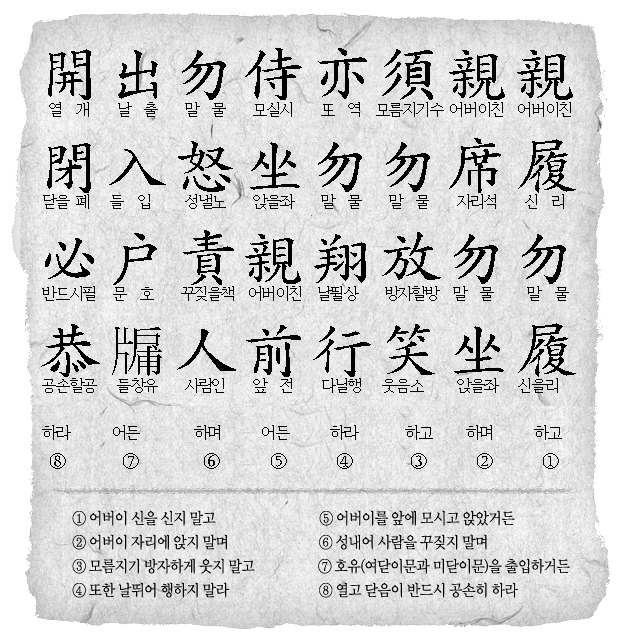 親 어버이친 履 신 리 勿 말 물 履 신을리 하고 ①
親 어버이친 席 자리석 勿 말 물 坐 앉을좌 하며 ②
須 모름지기수 勿 말 물 放 방자할방 笑 웃음소 하고 ③
亦 또 역 勿 말 물 翔 날뛸상 行 다닐행 하라 ④
侍 모실시 坐 앉을좌 親 어버이친 前 앞 전 어든 ⑤
勿 말 물 怒 성낼노 責 꾸짖을책 人 사람인 하며 ⑥
出 날 출 入 들 입 户 문 호 牖 들창유 어든 ⑦
開 열 개 閉 닫을 폐 必 반드시필 恭 공손할공 하라 ⑧
① 어버이 신을 신지 말고
② 어버이 자리에 앉지 말며
③ 모름지기 방자하게 웃지 말고
④ 또한 날뛰어 행하지 말라
⑤ 어버이를 앞에 모시고 앉았거든
⑥ 성내어 사람을 꾸짖지 말며
⑦ 호유(여닫이문과 미닫이문)을 출입하거든
⑧ 열고 닫음이 반드시 공손히 하라